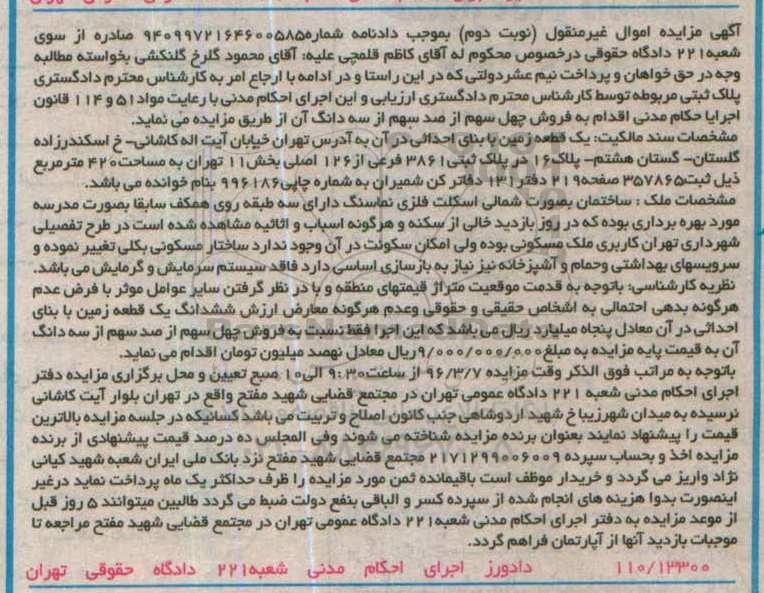 آگهی مزایده اموال غیرمنقول (نوبت دوم) بموجب دادنامه شماره۹۴۰۹۹۷۲۱۶۴۶۰۰۵۸۵ صادره از سوی
شعبه۲۲۱ دادگاه حقوقی درخصوص محکوم له آقای کاظم قلمچی علیه: آقای محمود گلرخ گلنکشی بخواسته مطالبه
وجه در حق خواهان و پرداخت نیم عشردولتی که در این راستا و در ادامه با ارجاع امر به کارشناس محترم دادگستری
پلاک ثبتی مربوطه توسط کارشناس محترم دادگستری ارزیابی و این اجرای احکام مدنی با رعایت مواد۵۱ و ۱۱۴ قانون
اجرایا حکام مدنی اقدام به فروش چهل سهم از صد سهم از سه دانگ آن از طریق مزایده می نماید.
مشخصات سند مالکیت: یک قطعه زمین با بنای احداثی در آن به آدرس تهران خیابان آیت اله کاشانی– خ اسکندرزاده
گلستان– گستان هشتم– پلاک۱۶ در پلاک ثبتی۳۸۶۱ فرعی از۱۲۶ اصلی بخش۱۱ تهران به مساحت۴۲۰ مترمربع
ذیل ثبت۳۵۷۸۶۵ صفحه۲۱۹ دفتر۱۳۱ دفاتر کن شمیران به شماره چاپی۹۹۶۱۸۶ بنام خوانده می باشد.
مشخصات ملک : ساختمان بصورت شمالی اسکلت فلزی نماسنگ دارای سه طبقه روی همکف سابقا بصورت مدرسه
مورد بهره برداری بوده که در روز بازدید خالی از سکنه و هرگونه اسباب و اثاثیه مشاهده شده است در طرح تفصیلی
شهرداری تهران کاربری ملک مسکونی بوده ولی امکان سکونت در آن وجود ندارد ساختار مسکونی بکلی تغییر نموده و
سرویسهای بهداشتی وحمام و آشپزخانه نیز نیاز به بازسازی اساسی دارد فاقد سیستم سرمایش و گرمایش می باشد.
نظریه کارشناسی: باتوجه به قدمت موقعیت متراژ قیمتهای منطقه و با در نظر گرفتن سایر عوامل موثر با فرض عدم
هرگونه بدهی احتمالی به اشخاص حقیقی و حقوقی وعدم هرگونه معارض ارزش ششدانگ یک قطعه زمین با بنای
احداثی در آن معادل پنجاه میلیارد ریال می باشد که این اجرا فقط نسبت به فروش چهل سهم از صد سهم از سه دانگ
آن به قیمت پایه مزایده به مبلغ۹/۰۰۰/۰۰۰/۰۰۰ریال معادل نهصد میلیون تومان اقدام می نماید.
باتوجه به مراتب فوق الذکر وقت مزایده ۹۶/۳/۷ از ساعت۹:۳۰ الی۱۰ صبح تعیین و محل برگزاری مزایده دفتر
اجرای احکام مدنی شعبه ۲۲۱ دادگاه عمومی تهران در مجتمع قضایی شهید مفتح واقع در تهران بلوار آیت کاشانی
نرسیده به میدان شهرزیباخ شهید اردوشاهی جنب کانون اصلاح و تربیت می باشد کسانیکه در جلسه مزایده بالاترین
قیمت را پیشنهاد نمایند بعنوان برنده مزایده شناخته می شوند وفی المجلس ده درصد قیمت پیشنهادی از برنده
مزایده اخذ و بحساب سپرده ۲۱۷۱۲۹۹۰۰۶۰۰۹ مجتمع قضایی شهید مفتح نزد بانک ملی ایران شعبه شهید کیانی
نژاد واریز می گردد و خریدار موظف است باقیمانده ثمن مورد مزایده را ظرف حداکثر یک ماه پرداخت نماید درغیر
اینصورت بدوا هزینه های انجام شده از سپرده کسر و الباقی بنفع دولت ضبط می گردد طالبین میتوانند ۵ روز قبل
از موعد مزایده به دفتر اجرای احکام مدنی شعبه۲۲۱ دادگاه عمومی تهران در مجتمع قضایی شهید مفتح مراجعه تا
موجبات بازدید آنها از آپارتمان فراهم گردد.
۱۱۰/۱۳۳۰۰ دادورز اجرای احکام مدنی شعبه۲۲۱ دادگاه حقوقی تهران